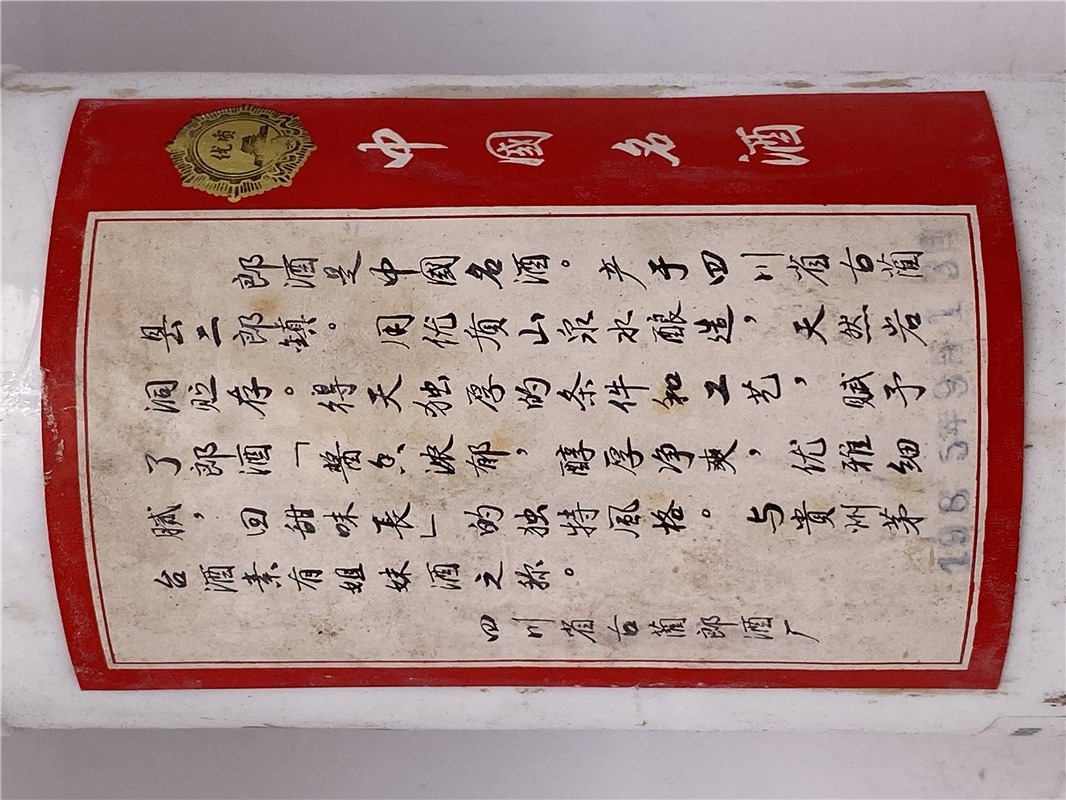 优质
中國名酒
郎酒是中國名酒。产于四川省古蔺
县二郎鎮。用优质山泉水酿造，天然岩
洞贮存。得天独厚的条件和工艺，赋予
了郎酒「醬香浓郁，醇厚净爽，优雅细
腻，回甜味長」的独特风格。与貴州茅
台酒素有姐妹酒之称。
四川省古蔺郎酒厂
198 5年9月1 3日